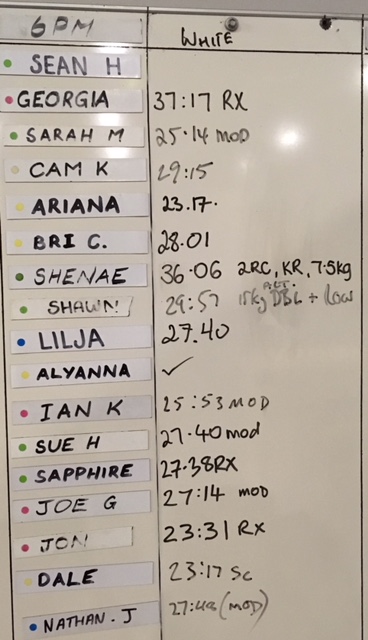 6PM WHITE
SEAN H
GEORGIA 37:17 RX
SARAH M 25.14 MOD
CAM K 29:15
ARIANA 23.17.
BRI C. 28.01
SHENAE 36.06 2RC, KR, 7.5kg
SHAWN 29:57 15kg DBL +
LILJA 27.40
ALYANNA ✓
IAN K 25:53 MOD
SUE H 27.40 mod
SAPPHIRE 27.38RX
JOE G 27:14 mod
JON 23:31 RX
DALE 23:17 sc
NATHAN.J 27:48 (MOD)